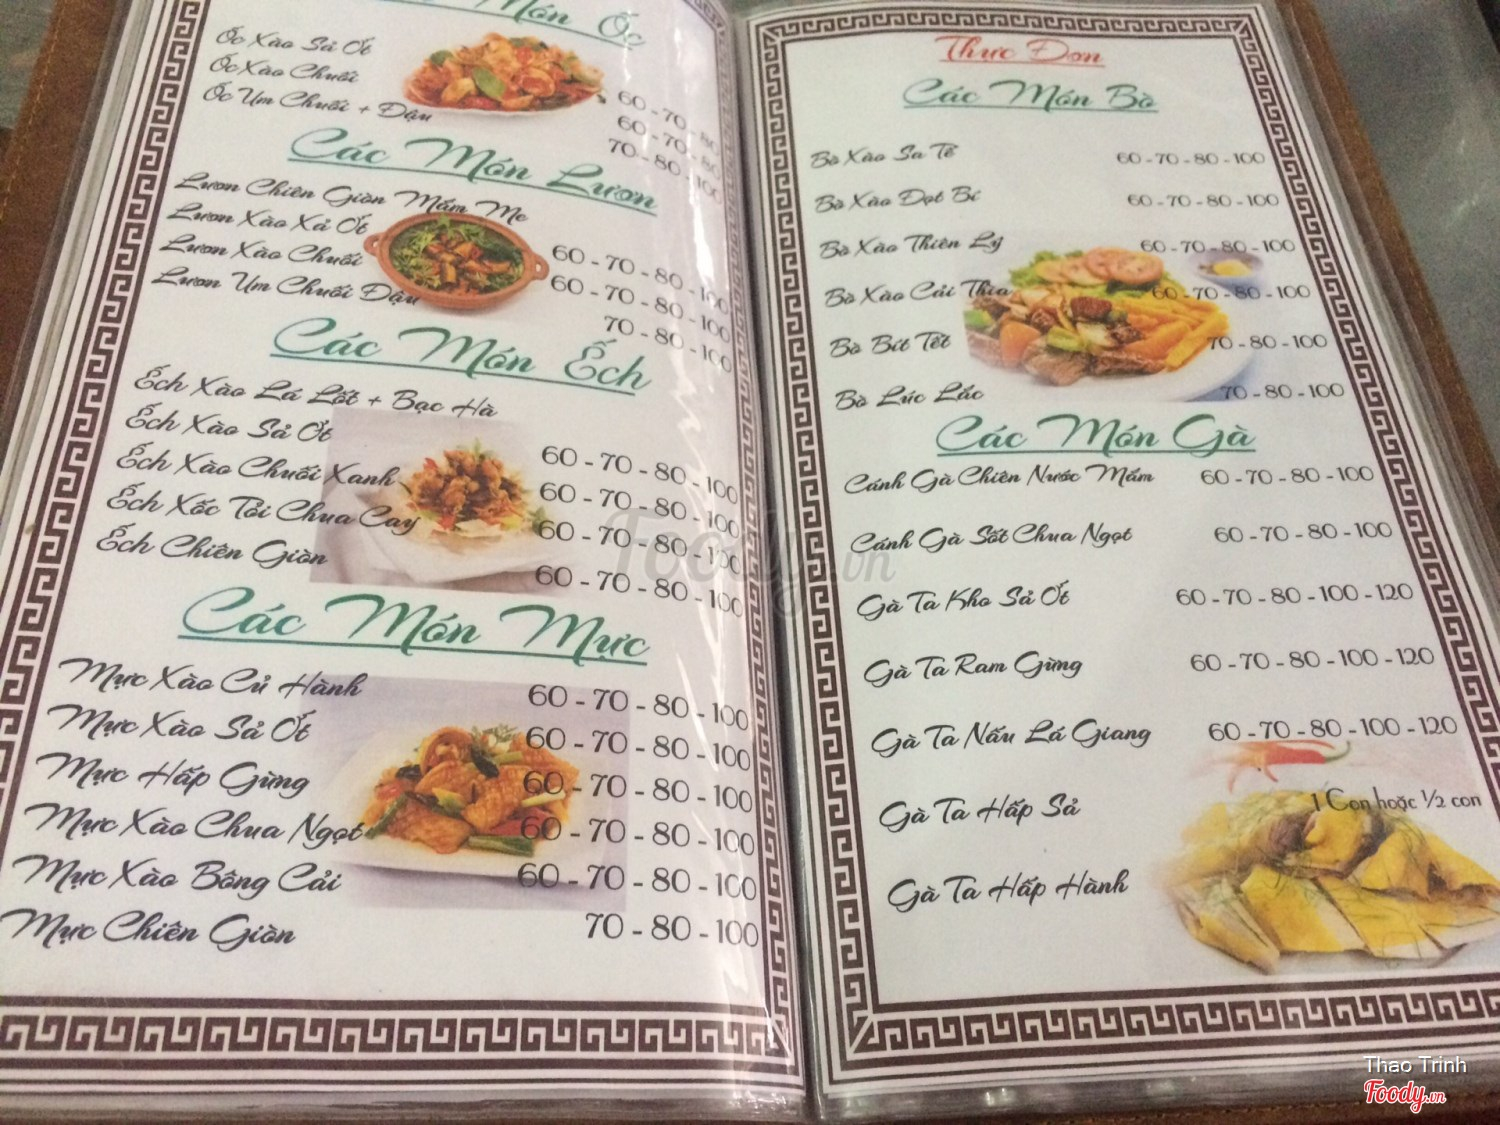 Món Ốc
Ốc Xào Sả Ớt 60 - 70 - 80
Ốc Xào Chuối 60 - 70 - 80
Ốc Um Chuối + Đậu 70 - 80 - 100
Các Món Lươn
Lươn Chiên Giòn Mắm Me
Lươn Xào Xả Ớt 60 - 70 - 80 - 100
Lươn Xào Chuối 60 - 70 - 80 - 100
Lươn Um Chuối Đậu 70 - 80 - 100
Các Món Ếch
Ếch Xào Lá Lốt + Bạc Hà
Ếch Xào Sả Ớt 60 - 70 - 80 - 100
Ếch Xào Chuối Xanh 60 - 70 - 80 - 100
Ếch Xốc Tỏi Chua Cay 60 - 70 - 80 - 100
Ếch Chiên Giòn 60 - 70 - 80 - 100
Các Món Mực
Mực Xào Củ Hành 60 - 70 - 80 - 100
Mực Xào Sả Ớt 60 - 70 - 80 - 100
Mực Hấp Gừng 60 - 70 - 80 - 100
Mực Xào Chua Ngọt 60 - 70 - 80 - 100
Mực Xào Bông Cải 60 - 70 - 80 - 100
Mực Chiên Giòn 70 - 80 - 100
Thực Đơn
Các Món Bò
Bò Xào Sa Tế 60 - 70 - 80 - 100
Bò Xào Đọt Bí 60 - 70 - 80 - 100
Bò Xào Thiên Lý 60 - 70 - 80 - 100
Bò Xào Cải Thìa 60 - 70 - 80 - 100
Bò Bít Tết 70 - 80 - 100
Bò Lúc Lắc 70 - 80 - 100
Các Món Gà
Cánh Gà Chiên Nước Mắm 60 - 70 - 80 - 100
Cánh Gà Sốt Chua Ngọt 60 - 70 - 80 - 100
Gà Ta Kho Sả Ớt 60 - 70 - 80 - 100 - 120
Gà Ta Ram Gừng 60 - 70 - 80 - 100 - 120
Gà Ta Nấu Lá Giang 60 - 70 - 80 - 100 - 120
Gà Ta Hấp Sả 1 Con hoặc 1/2 con
Gà Ta Hấp Hành
Foody.vn
Thao Trinh
Foody.vn